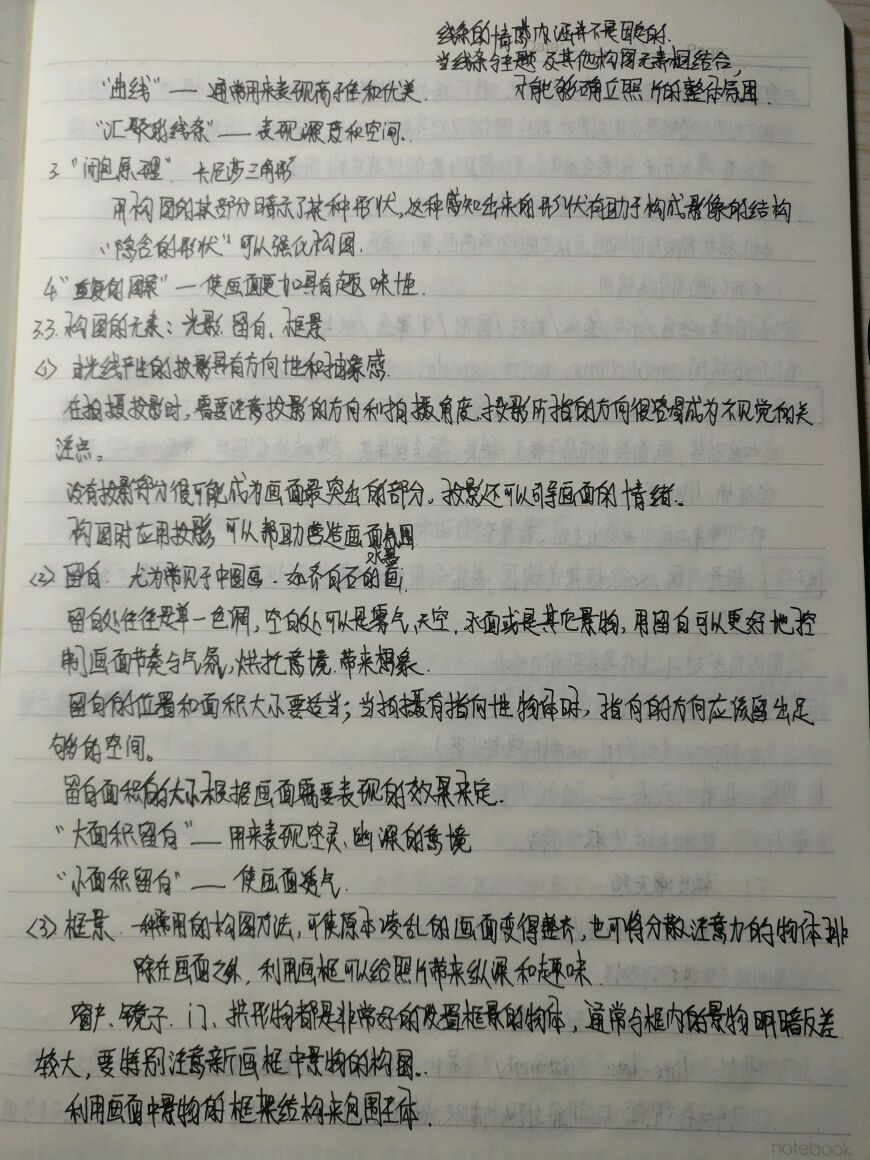 线条的情感内涵并不是固定的.
当线条与主题及其他构图元素相结合,
才能够确立照片的整体氛围.
"曲线" —— 通常用来表现高雅和优美.
"汇聚的线条" —— 表现深度和空间.
3 "闭包原理" 卡尼莎三角形
用构图的某部分暗示了某种形状,这种感知出来的形状有助于构成影像的结构
"隐含的形状" 可以强化构图.
4 "重复的图案" — 使画面更加具有趣味性.
3.3. 构图的元素: 光影. 留白, 框景
<1> 由光线产生的投影具有方向性和抽象感.
在拍摄投影时, 需要注意投影的方向和拍摄角度,投影所指的方向很容易成为视觉的关
注点。
没有投影部分很可能成为画面最突出的部分。投影还可以引导画面的情绪.
构图时应用投影 可以帮助营造画面氛围
<2> 留白. 尤为常见于中国画. 如齐白石的画
水墨
留白处往往是单一色调, 空白处可以是雾气,天空. 水面或是其它景物, 用留白可以更好地控
制画面节奏与气氛, 烘托意境. 带来想象.
留白的位置和面积大小要适当; 当拍摄有指向性物体时, 指向的方向应该留出足
够的空间。
留白面积的大小根据画面需要表现的效果来定.
"大面积留白" —— 用来表现空灵、幽深的意境
"小面积留白" —— 使画面透气.
<3> 框景. 一种常用的构图方法, 可使原本凌乱的画面变得整齐, 也可将分散注意力的物体排
除在画面之外, 利用画框可以给照片带来纵深和趣味.
窗户、镜子. 门、拱形物都是非常好的设置框景的物体, 通常与框内的景物明暗反差
较大, 要特别注意新画框中景物的构图.
利用画面中景物的框架结构来包围主体.
notebook